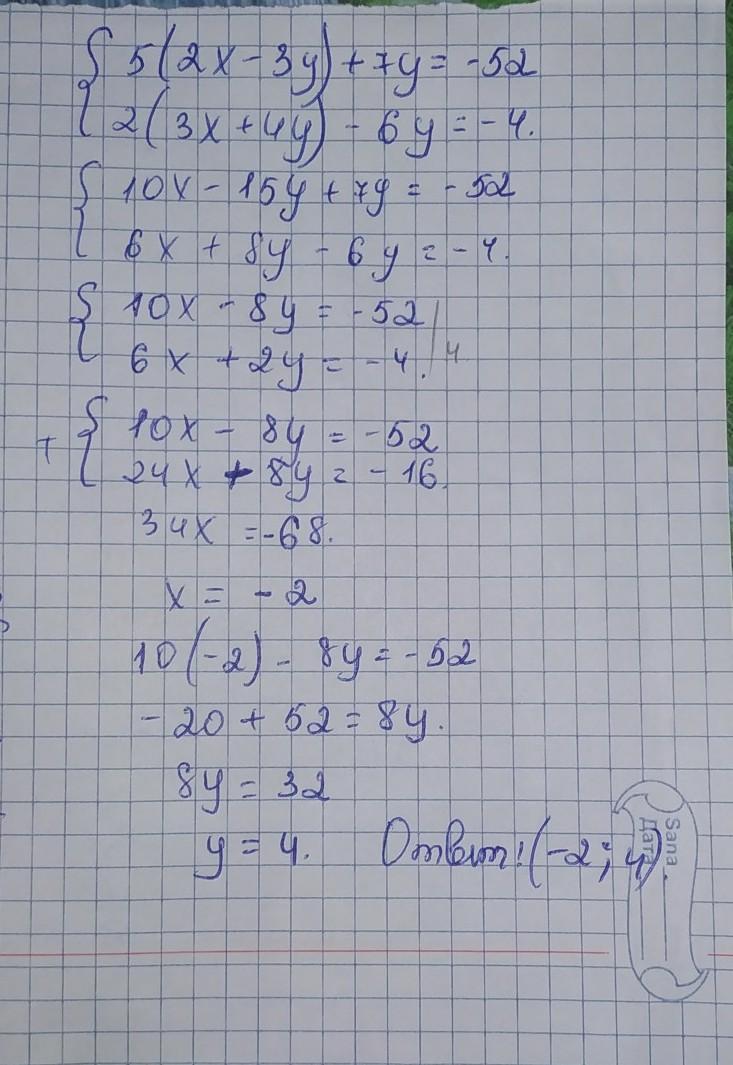 { 5(2x-3y)+7y=-52
2(3x+4y)-6y=-4.
{ 10x-15y+7y=-52
6x+8y-6y=-4.
{ 10x-8y=-52
6x+2y=-4. | 4
+ { 10x-8y=-52
24x+8y=-16.
34x=-68.
x=-2
10(-2)-8y=-52
-20+52=8y.
8y=32
y=4. Ответ: (-2; 4)
Sana
Дата